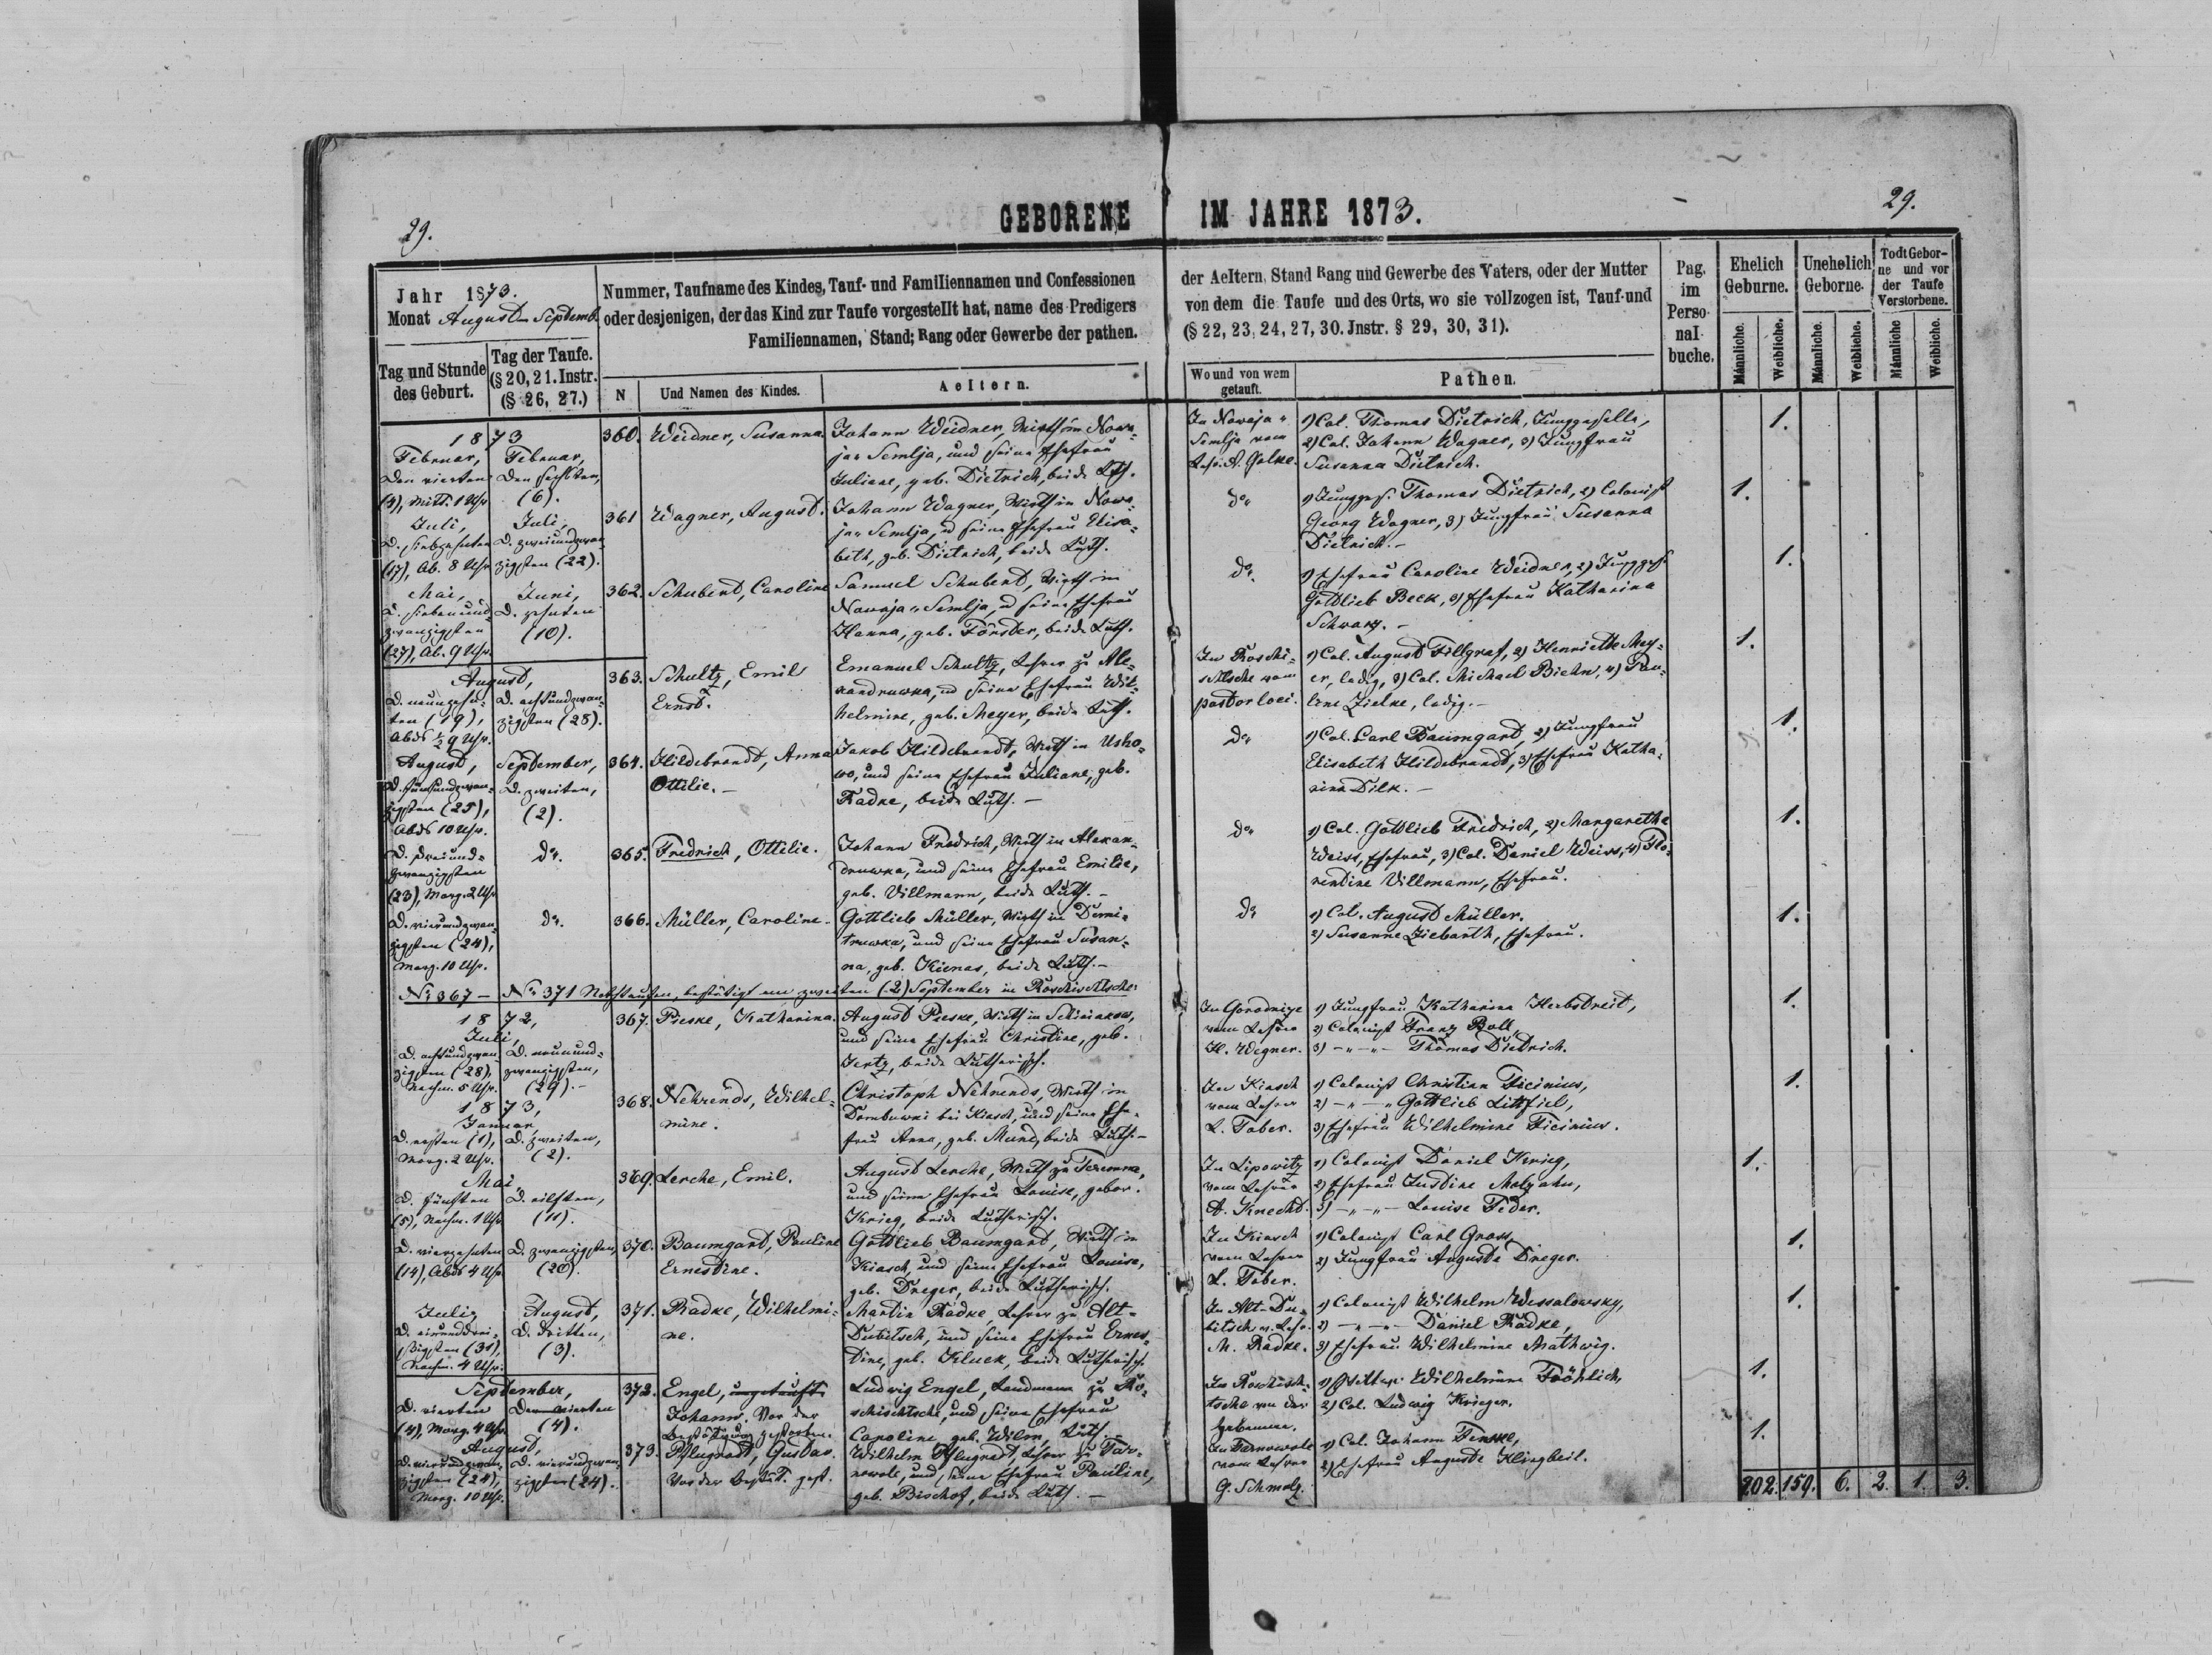 29.
GEBORENE IM JAHRE 1873.
29.
Jahr 1873.
Monat August – Septemb.
Tag und Stunde des Geburt.
Tag der Taufe. (§ 20, 21. Instr. (§ 26, 27.)
Nummer, Taufname des Kindes, Tauf- und Familiennamen und Confessionen
oder desjenigen, der das Kind zur Taufe vorgestellt hat, name des Predigers
Familiennamen, Stand; Rang oder Gewerbe der pathen.
N
Und Namen des Kindes.
Aeltern.
der Aeltern, Stand Rang und Gewerbe des Vaters, oder der Mutter
von dem die Taufe und des Orts, wo sie vollzogen ist, Tauf-und
(§ 22, 23, 24, 27, 30. Jnstr. § 29, 30, 31).
Wo und von wem getauft.
Pathen.
Pag. im Perso- nal- buche.
Ehelich Geburne.
Unehelich Geborne.
Todt Gebor- ne und vor der Taufe Verstorbene.
Männliche.
Weibliche.
Männliche.
Weibliche.
Männliche
Weibliche.
1873
Februar,
Den vierten
(4), Mitt. 1 Uhr
Februar,
Den sechsten,
(6).
360.
Weidner, Susanna.
Johann Weidner, Wirth in Nowa-
ja Semlja, und seine Ehefrau
Juliane, geb. Dietrich, beide Lth.
In Nowaja
Semlja vom
Lehr. A. Golke.
1) Col. Thomas Dietrich, Junggeselle,
2) Col. Johann Wagner, 3) Jungfrau
Susanna Dietrich.
1.
Juli,
D. siebzehnten
(17), Ab. 8 Uhr
Juli,
D. zweiundzwan-
zigsten (22).
361
Wagner, August.
Johann Wagner, Wirth in Nowa-
ja Semlja, u seine Ehefrau Elisa-
beth, geb. Dietrich, beide Luth.
do
1) Jungges. Thomas Dietrich, 2) Colonist
Georg Wagner, 3) Jungfrau Susanna
Dietrich. –
1.
Mai,
D. siebenund-
zwanzigsten
(27), Ab. 9 Uhr.
Juni,
D. zehnten
(10).
362.
Schubert, Caroline
Samuel Schubert, Wirth in
Nowaja Semlja, u seine Ehefrau
Hanna, geb. Förster, beide Luth.
do.
1) Ehefrau Caroline Weidner, 2) Jungges.
Gottlieb Beck, 3) Ehefrau Katharina
Schwarz. –
1.
August,
D. neunzehn-
ten (19),
Abds ½ 9 Uhr.
D. achtundzwan-
zigsten (28).
363.
Schultz, Emil
Ernst.
Emanuel Schultz, Lehrer zu Ale-
xandruwka, u seine Ehefrau Wil-
helmine, geb. Meyer, beide Luth.
In Roschi-
schtsche vom
pastor loci.
1) Col. August Fillgraf, 2) Henriette Mey-
er, ledig, 3) Col. Michael Biehn, 4) Pau-
line Zielke, ledig. –
1.
August,
D. fünfundzwan-
zigsten (25),
Abds 10 Uhr.
September,
D. zweiten,
(2).
364.
Hildebrandt, Anna
Ottilie. –
Jakob Hildebrandt, Wirth in Usho-
wo, und seine Ehefrau Juliane, geb.
Radke, beide Luth. –
do
1) Col. Carl Baumgard, 2) Jungfrau
Elisabeth Hildebrandt, 3) Ehefrau Katha-
rina Dilk. –
1.
D. dreiund-
zwanzigsten
(23), Morg. 2 Uhr
do.
365.
Fredrich, Ottilie.
Johann Fredrich, Wirth in Alexan-
druwka, und seine Ehefrau Emilie,
geb. Villmann, beide Luth. –
do
1) Col. Gottlieb Fredrich, 2) Margarethe
Weiss, Ehefrau, 3) Col. Daniel Weiss, 4) Flo-
rentine Villmann, Ehefrau.
1.
D. vierundzwan-
zigsten (24),
Morg. 10 Uhr.
do.
366.
Müller, Caroline.
Gottlieb Müller, Wirth in Demi-
truwka, und seine Ehefrau Susan-
na, geb. Kienas, beide Luth. –
do
1) Col. August Müller.
2) Susanne Ziebarth, Ehefrau.
1.
No 367 – No 371 Nothtaufen, bestätigt am zweiten (2) September in Roschischtsche:
1872,
Juli,
D. achtundzwan-
zigsten (28),
Nachm. 5 Uhr.
D. neunund-
zwanzigsten,
(29). –
367.
Pieske, Katharina.
August Pieske, Wirth in
und seine Ehefrau Christine, geb.
Jertz, beide Lutherisch.
In Gorodnize
vom Lehrer
H. Wegner.
1) Jungfrau Katharina Herbstreit,
2) Colonist Franz Boll,
3) – " – " – Thomas Dietrich.
1.
1873,
Januar,
D. ersten (1),
Morg. 2 Uhr.
D. zweiten,
(2).
368.
Nehrends, Wilhel-
mine.
Christoph Nehrends, Wirth in
Dombuwki bei Kiasch, und seine Ehe-
frau Anna, geb. Mund, beide Luth. –
In Kiasch
vom Lehrer
L. Tober.
1) Colonist Christian Ficinius,
2) – " – " Gottlieb Littfiel,
3) Ehefrau Wilhelmine Ficinius.
1.
Mai
D. fünften
(5), Nachm. 1 Uhr
D. eilften,
(11).
369.
Lerche, Emil.
August Lerche, Wirth zu Teremna,
und seine Ehefrau Louise, gebor.
Krieg, beide Lutherisch.
In Lipowitz
vom Lehrer
A. Knecht.
1) Colonist Daniel Krieg,
2) Ehefrau Justine Molzahn,
3) – " – " – Louise Feder.
1.
D. vierzehnten
(14), Abds 4 Uhr
D. zwanzigsten,
(20).
370.
Baumgart, Pauline
Ernestine.
Gottlieb Baumgart, Wirth in
Kiasch, und seine Ehefrau Louise,
geb. Dreger, beide Lutherisch.
In Kiasch
vom Lehrer
L. Tober.
1) Colonist Carl Gross,
2) Jungfrau Auguste Dreger.
1.
Juli,
D. einunddrei-
ssigsten (31),
Nachm. 4 Uhr.
August,
D. dritten,
(3).
371.
Radke, Wilhelmi-
ne.
Martin Radke, Lehrer zu Alt-
Dubitsch, und seine Ehefrau Ernes-
tine, geb. Kluck, beide Lutherisch.
In Alt-Du-
bitsch v. Lehr.
M. Radke.
1) Colonist Wilhelm Wessalowsky,
2) – " – " – Daniel Radke,
3) Ehefrau Wilhelmine Mathwig.
1.
September,
D. vierten
(4), Morg. 4 Uhr.
Den vierten
(4).
372.
Engel, ungetauft.
Johann. Vor der
Bestätigung gestorben.
Ludwig Engel, Landmann zu Ro-
schischtsche, und seine Ehefrau
Caroline, geb. Wilm, Luth.
In Roschisch-
tsche von der
Hebamme.
1) Wilhelmine Fröhlich,
2) Col. Ludwig Krieger.
1.
August,
D. vierundzwan-
zigsten (24),
Morg. 10 Uhr.
D. vierundzwan-
zigsten (24).
373.
Pflugrad, Gustav.
Vor der Bestät. gest.
Wilhelm Pflugrad, Lehrer zu Tar-
nowole, und seine Ehefrau Pauline,
geb. Bischof, beide Luth. –
In Tarnowole
vom Lehrer
G. Schmalz.
1) Col. Johann Fenske,
2) Ehefrau Auguste Klingbeil.
1.
202. 159. 6. 2. 1. 3.